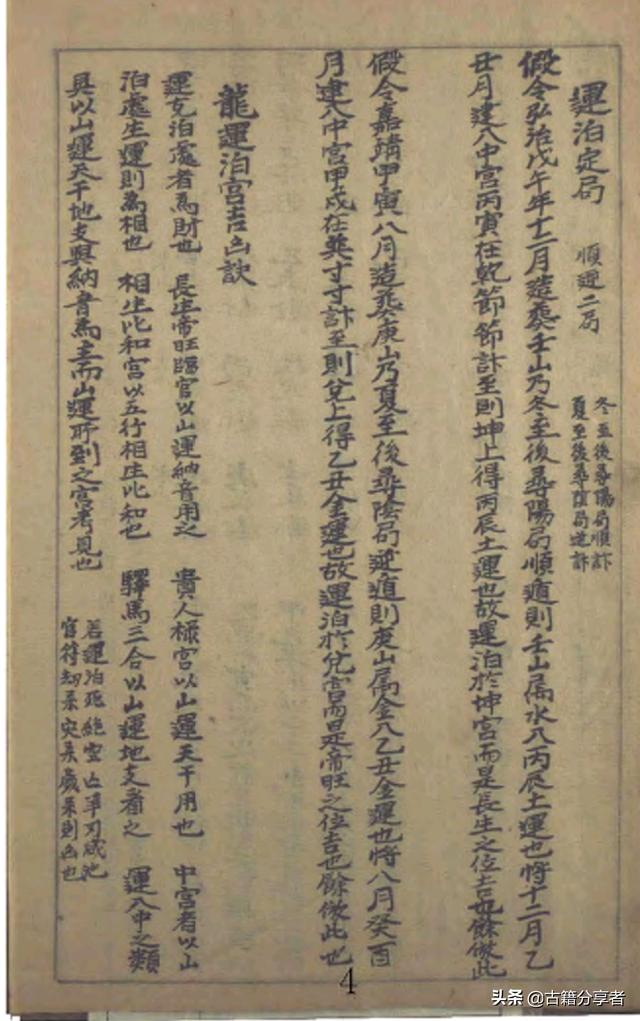 運泊定局 順逆二局 冬至後尋陽局順計
夏至後尋陰局逆計
假令弘治戊午年十二月造𦵏壬山乃冬至後尋陽局順遁則壬山屬水入丙辰土運也将十二月乙
丑月建入中宮丙寅在乾節節計至則坤上得丙辰土運也故運泊於坤宮而是長生之位吉也餘倣此
假令嘉靖甲寅八月造𦵏庚山乃夏至後尋陰局逆遁則庚山属金入乙丑金運也将八月癸酉
月建入中宮甲戌在巽寸寸計至則兌上得乙丑金運也故運泊於兌宮而是帝旺之位吉也餘倣此也
龍運泊宮吉凶訣
運克泊處者為財也 長生帝旺臨官以山運納音用之 貴人祿宮以山運天干用也 中宮者以山
泊處生運則為相也 相生比和宮以五行相生比和也 驛馬三合以山運地支看之 運入中之類
具以山運天干地支與納音為主而山運所到之宮考見也 若運泊死絕空亡羊刃咸池
官符刼杀灾杀歲杀則凶也
4
头条 @古籍分享者